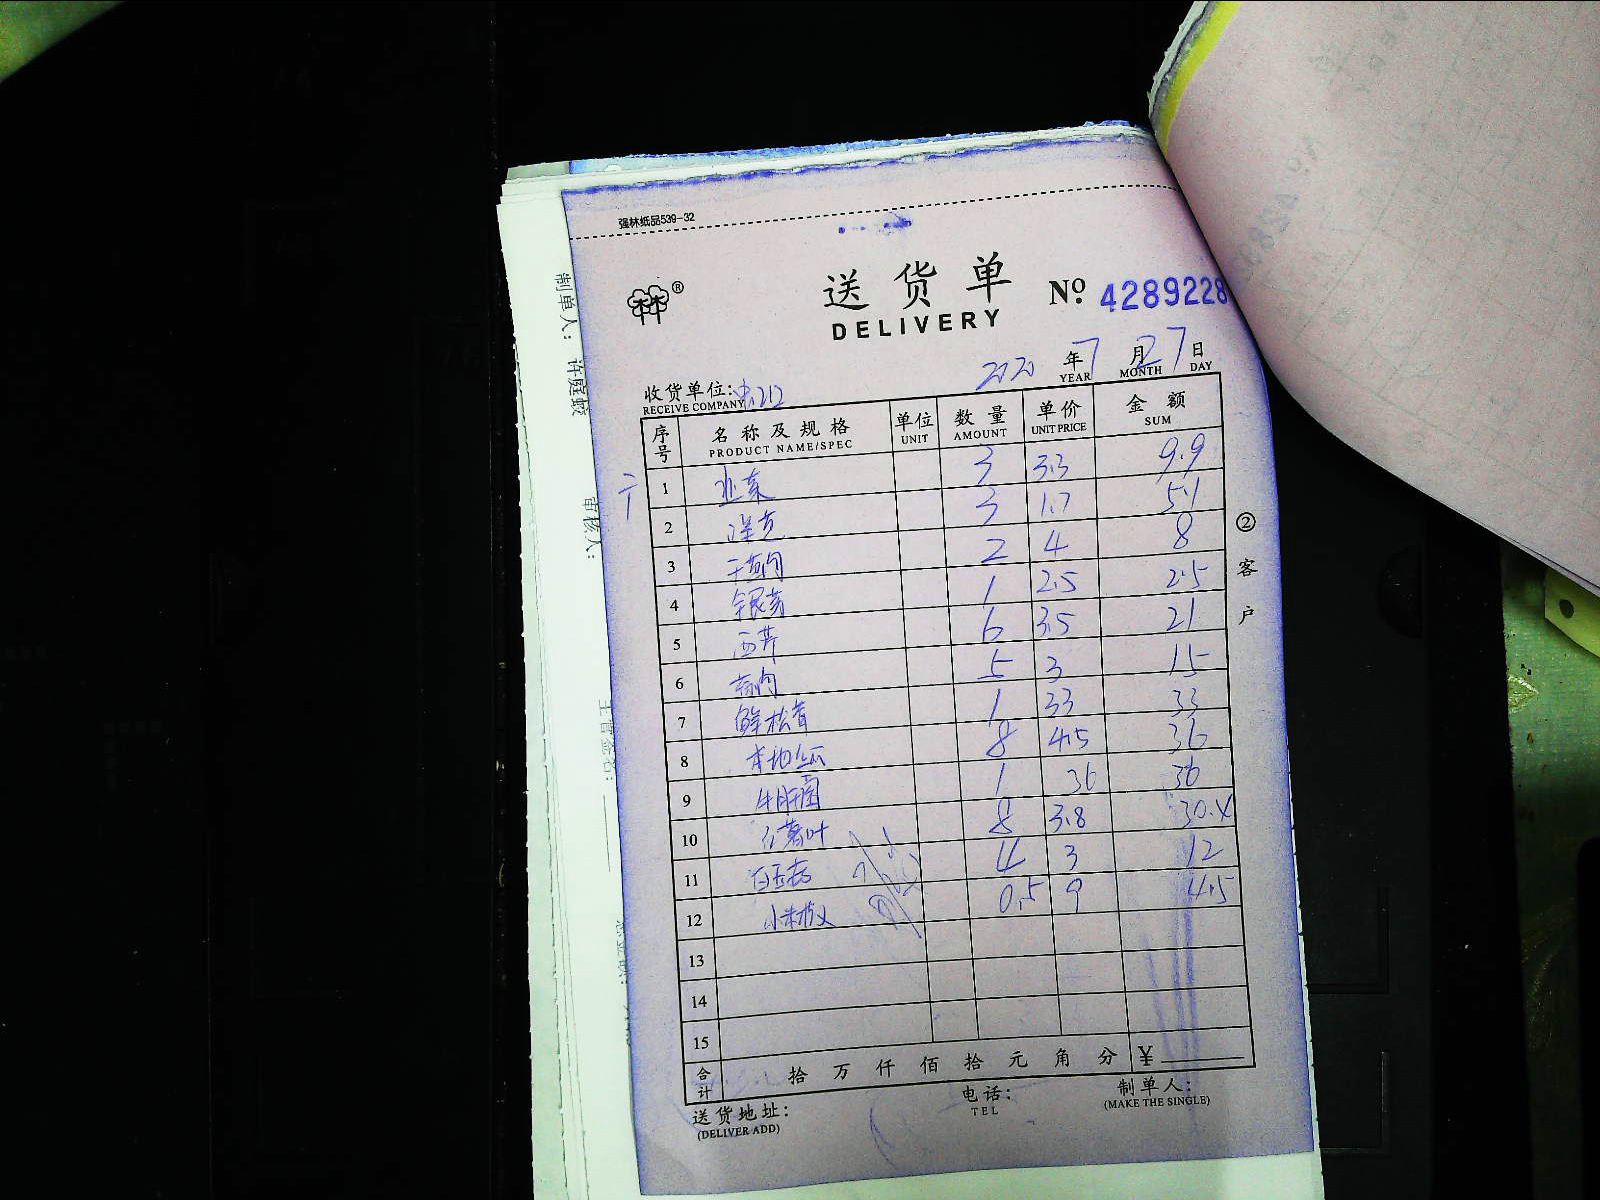 强林纸品539-32
®
送货单 No 4289228
DELIVERY
2020 年 7 月 27 日
YEAR MONTH DAY
收货单位:
RECEIVE COMPANY
序号 名称及规格 单位 数量 单价 金额
PRODUCT NAME/SPEC UNIT AMOUNT UNIT PRICE SUM
1 韭菜 3 3.3 9.9
2 洋芫 3 1.7 5.1
3 2 4 8
4 银芽 1 2.5 2.5
5 西芹 6 3.5 21
6 5 3 15
7 鲜松茸 1 33 33
8 本地 8 4.5 36
9 牛肝菌 1 36 36
10 薯叶 8 3.8 30.4
11 白玉菇 4 3 12
12 小米椒 0.5 9 4.5
13
14
15
合计 拾 万 仟 佰 拾 元 角 分 ¥
送货地址: 电话: 制单人:
(DELIVER ADD) TEL (MAKE THE SINGLE)
②客户
制单人: 许庭
审核人:
主管签名: